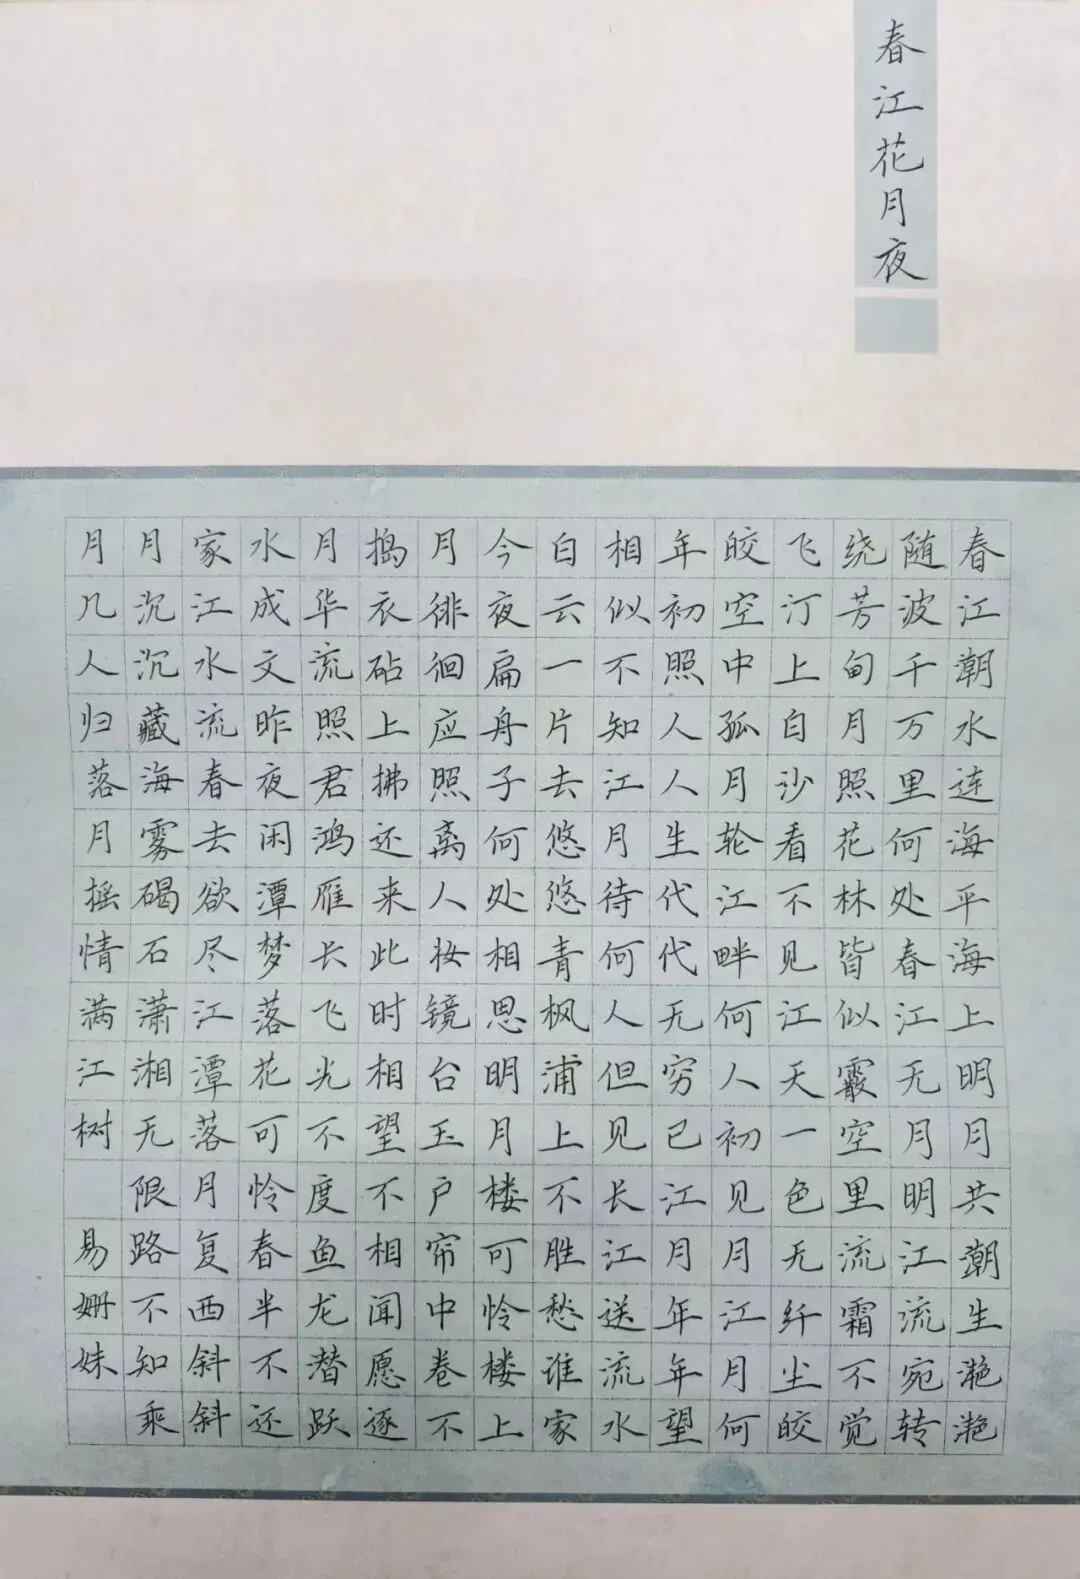 春江花月夜
春江潮水连海平海上明月共潮生滟滟
随波千万里何处春江无月明江流宛转
绕芳甸月照花林皆似霰空里流霜不觉
飞汀上白沙看不见江天一色无纤尘皎
皎空中孤月轮江畔何人初见月江月何
年初照人人生代代无穷已江月年年望
相似不知江月待何人但见长江送流水
白云一片去悠悠青枫浦上不胜愁谁家
今夜扁舟子何处相思明月楼可怜楼上
月徘徊应照离人妆镜台玉户帘中卷不
捣衣砧上拂还来此时相望不相闻愿逐
月华流照君鸿雁长飞光不度鱼龙潜跃
水成文昨夜闲潭梦落花可怜春半不还
家江水流春去欲尽江潭落月复西斜斜
月沉沉藏海雾碣石潇湘无限路不知乘
月几人归落月摇情满江树 易姗妹